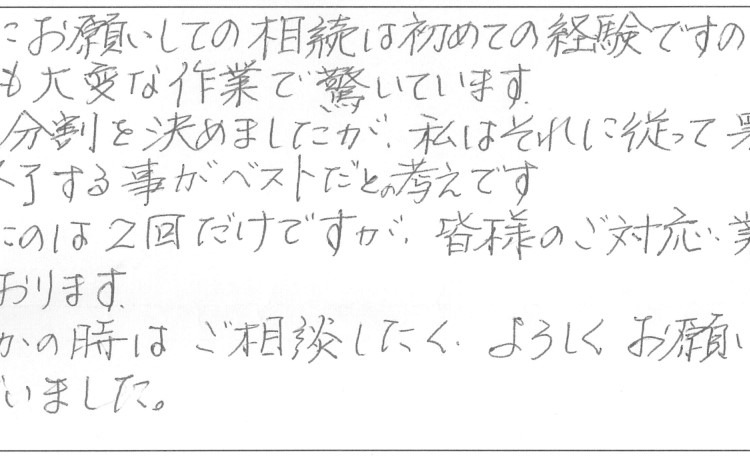 にお願いしての相続は初めての経験ですの
も大変な作業で驚いています.
分割を決めましたが、私はそれに従って
了する事がベストだとの考えです
のは2回だけですが、皆様のご対応、業
おります.
かの時はご相談したく、よろしくお願い
いました。